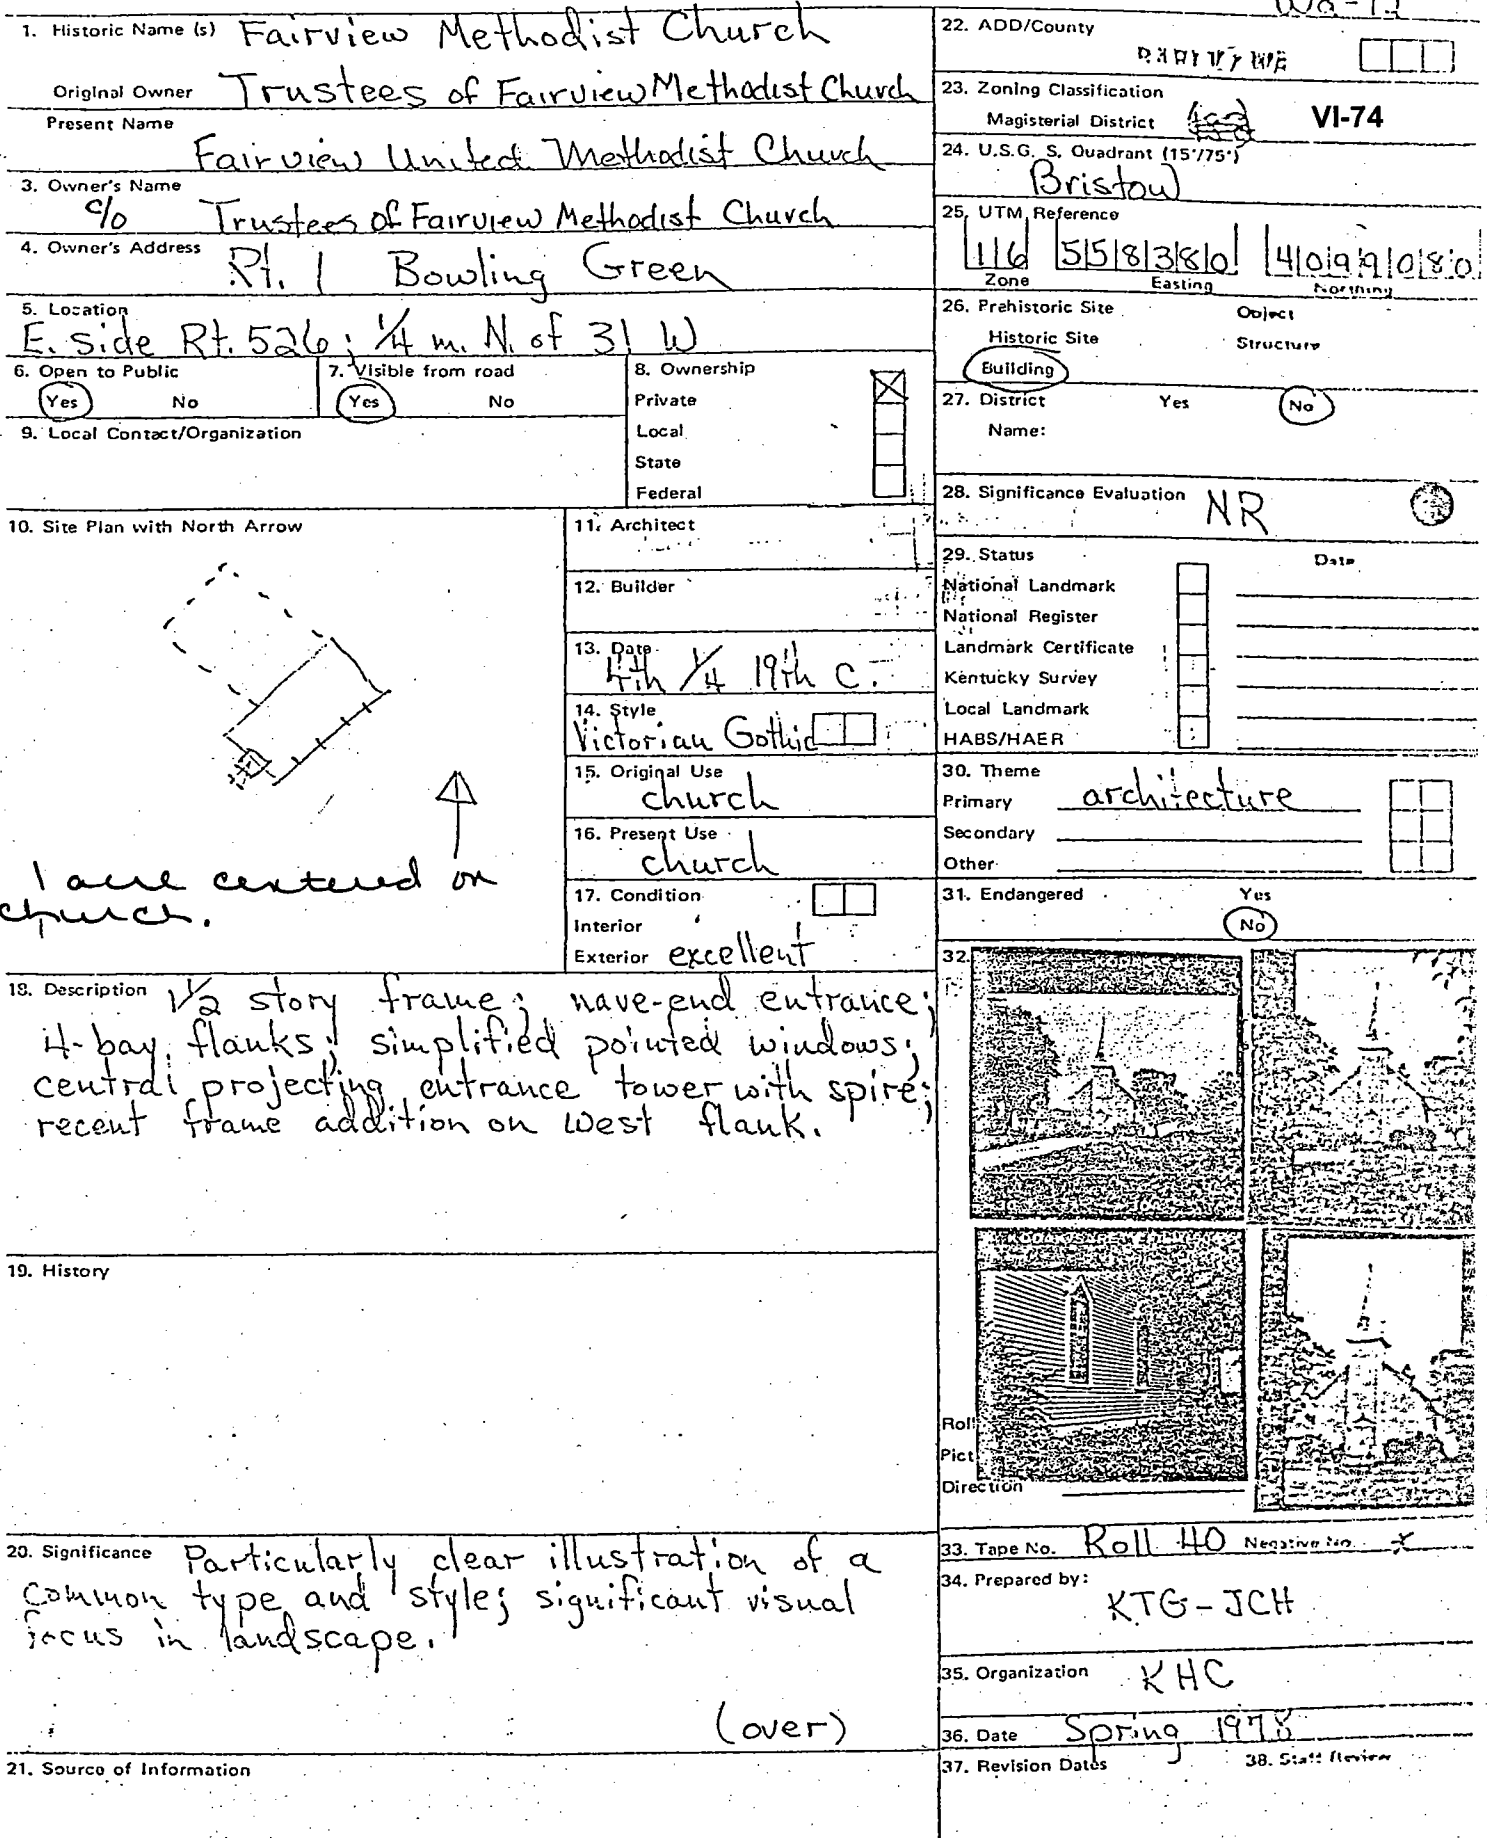 1. Historic Name (s) Fairview Methodist Church
Original Owner Trustees of Fairview Methodist Church
Present Name
Fairview United Methodist Church
3. Owner's Name
c/o Trustees of Fairview Methodist Church
4. Owner's Address Rt. 1 Bowling Green
5. Location
E. side Rt. 526; 1/4 m. N. of 31 W
6. Open to Public
Yes No
7. Visible from road
Yes No
8. Ownership
Private
Local
State
Federal
9. Local Contact/Organization
10. Site Plan with North Arrow
1 acre centered on
church.
11. Architect
12. Builder
13. Date
4th 1/4 19th C.
14. Style
Victorian Gothic
15. Original Use
church
16. Present Use
church
17. Condition
Interior
Exterior excellent
18. Description 1 1/2 story frame; nave-end entrance;
4-bay flanks; simplified pointed windows;
central projecting entrance tower with spire;
recent frame addition on west flank.
19. History
20. Significance Particularly clear illustration of a
common type and style; significant visual
focus in landscape.
(over)
21. Source of Information
22. ADD/County
23. Zoning Classification
Magisterial District VI-74
24. U.S.G. S. Quadrant (15'/75')
Bristow
25. UTM Reference
16 558380 4099080
Zone Easting Northing
26. Prehistoric Site Object
Historic Site Structure
Building
27. District Yes No
Name:
28. Significance Evaluation NR
29. Status Date
National Landmark
National Register
Landmark Certificate
Kentucky Survey
Local Landmark
HABS/HAER
30. Theme
Primary architecture
Secondary
Other
31. Endangered Yes
No
32.
Roll
Pict
Direction
33. Tape No. Roll 40 Negative No.
34. Prepared by:
KTG-JCH
35. Organization KHC
36. Date Spring 1978
37. Revision Dates 38. Staff Review